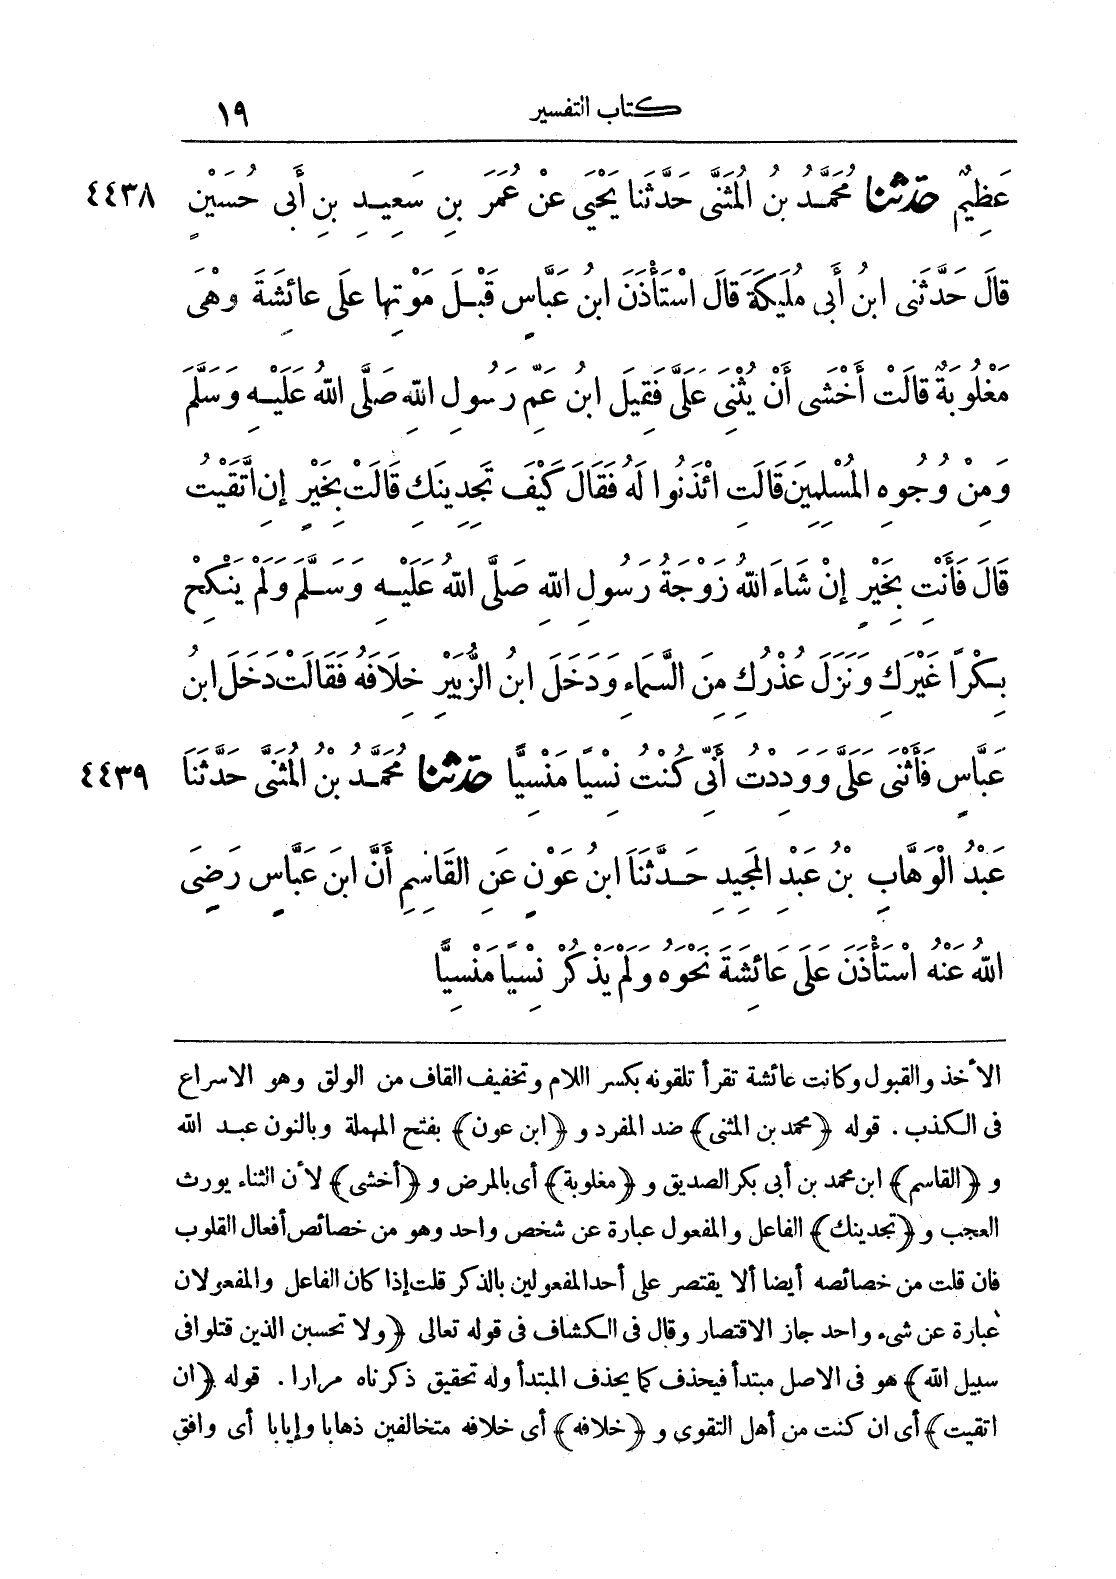 كتاب التفسير ١٩
عَظِيمٌ حَدَّثَنَا مُحَمَّدُ بْنُ الْمُثَنَّى حَدَّثَنَا يَحْيَى عَنْ عُمَرَ بنِ سَعِيدِ بنِ أَبى حُسَيْنٍ ٤٤٣٨
قَالَ حَدَّثَنى ابنُ أَبى مُلَيْكَةَ قَالَ اسْتَأْذَنَ ابنُ عَبَّاسٍ قَبْلَ مَوْتِها عَلَى عائِشَةَ وهْىَ
مَغْلُوبَةٌ قَالَتْ أَخْشَى أَنْ يُثْنِىَ عَلَىَّ فَقِيلَ ابنُ عَمِّ رَسُولِ اللهِ صَلَّى اللهُ عَلَيْهِ وَسَلَّمَ
وَمِنْ وُجُوهِ المُسْلِمِينَ قَالَتِ ائْذَنُوا لَهُ فَقَالَ كَيْفَ تَجِدِينَكِ قَالَتْ بِخَيْرٍ إِنِ اتَّقَيْتُ
قَالَ فَأَنْتِ بِخَيْرٍ إِنْ شَاءَ اللهُ زَوْجَةُ رَسُولِ اللهِ صَلَّى اللهُ عَلَيْهِ وَسَلَّمَ وَلَمْ يَنْكِحْ
بِكْرًا غَيْرَكِ وَنَزَلَ عُذْرُكِ مِنَ السَّمَاءِ وَدَخَلَ ابنُ الزُّبَيْرِ خِلَافَهُ فَقَالَتْ دَخَلَ ابنُ
عَبَّاسٍ فَأَثْنَى عَلَىَّ وَوَدِدْتُ أَنِّى كُنْتُ نِسْيًا مَنْسِيًّا حَدَّثَنَا مُحَمَّدُ بْنُ الْمُثَنَّى حَدَّثَنَا ٤٤٣٩
عَبْدُ الْوَهَّابِ بْنُ عَبْدِ الْمَجِيدِ حَدَّثَنَا ابنُ عَوْنٍ عَنِ القَاسِمِ أَنَّ ابنَ عَبَّاسٍ رَضِىَ
اللهُ عَنْهُ اسْتَأْذَنَ عَلَى عَائِشَةَ نَحْوَهُ وَلَمْ يَذْكُرْ نِسْيًا مَنْسِيًّا
الأخذ والقبول وكانت عائشة تقرأ تلقونه بكسر اللام وتخفيف القاف من الولق وهو الاسراع
فى الكذب . قوله ﴿محمد بن المثنى﴾ ضد المفرد و ﴿ابن عون﴾ بفتح المهملة وبالنون عبد الله
و ﴿القاسم﴾ ابن محمد بن أبى بكر الصديق و ﴿مغلوبة﴾ أى بالمرض و ﴿أخشى﴾ لأن الثناء يورث
العجب و ﴿تجدينك﴾ الفاعل والمفعول عبارة عن شخص واحد وهو من خصائص أفعال القلوب
فان قلت من خصائصه أيضا ألا يقتصر على أحد المفعولين بالذكر قلت إذا كان الفاعل والمفعولان
عبارة عن شىء واحد جاز الاقتصار وقال فى الكشاف فى قوله تعالى ﴿ولا تحسبن الذين قتلوا فى
سبيل الله﴾ هو فى الاصل مبتدأ فيحذف كما يحذف المبتدأ وله تحقيق ذكرناه مرارا . قوله ﴿ان
اتقيت﴾ أى ان كنت من أهل التقوى و ﴿خلافه﴾ أى خلافه متخالفين ذهابا وإيابا أى وافق